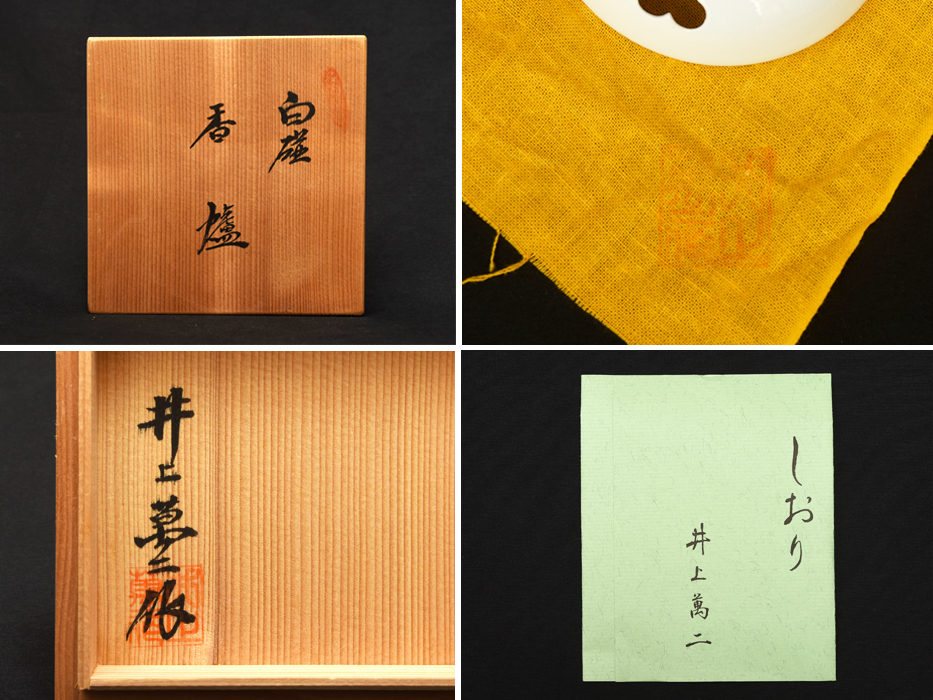 白磁
香爐
井上萬二作
しおり
井上萬二